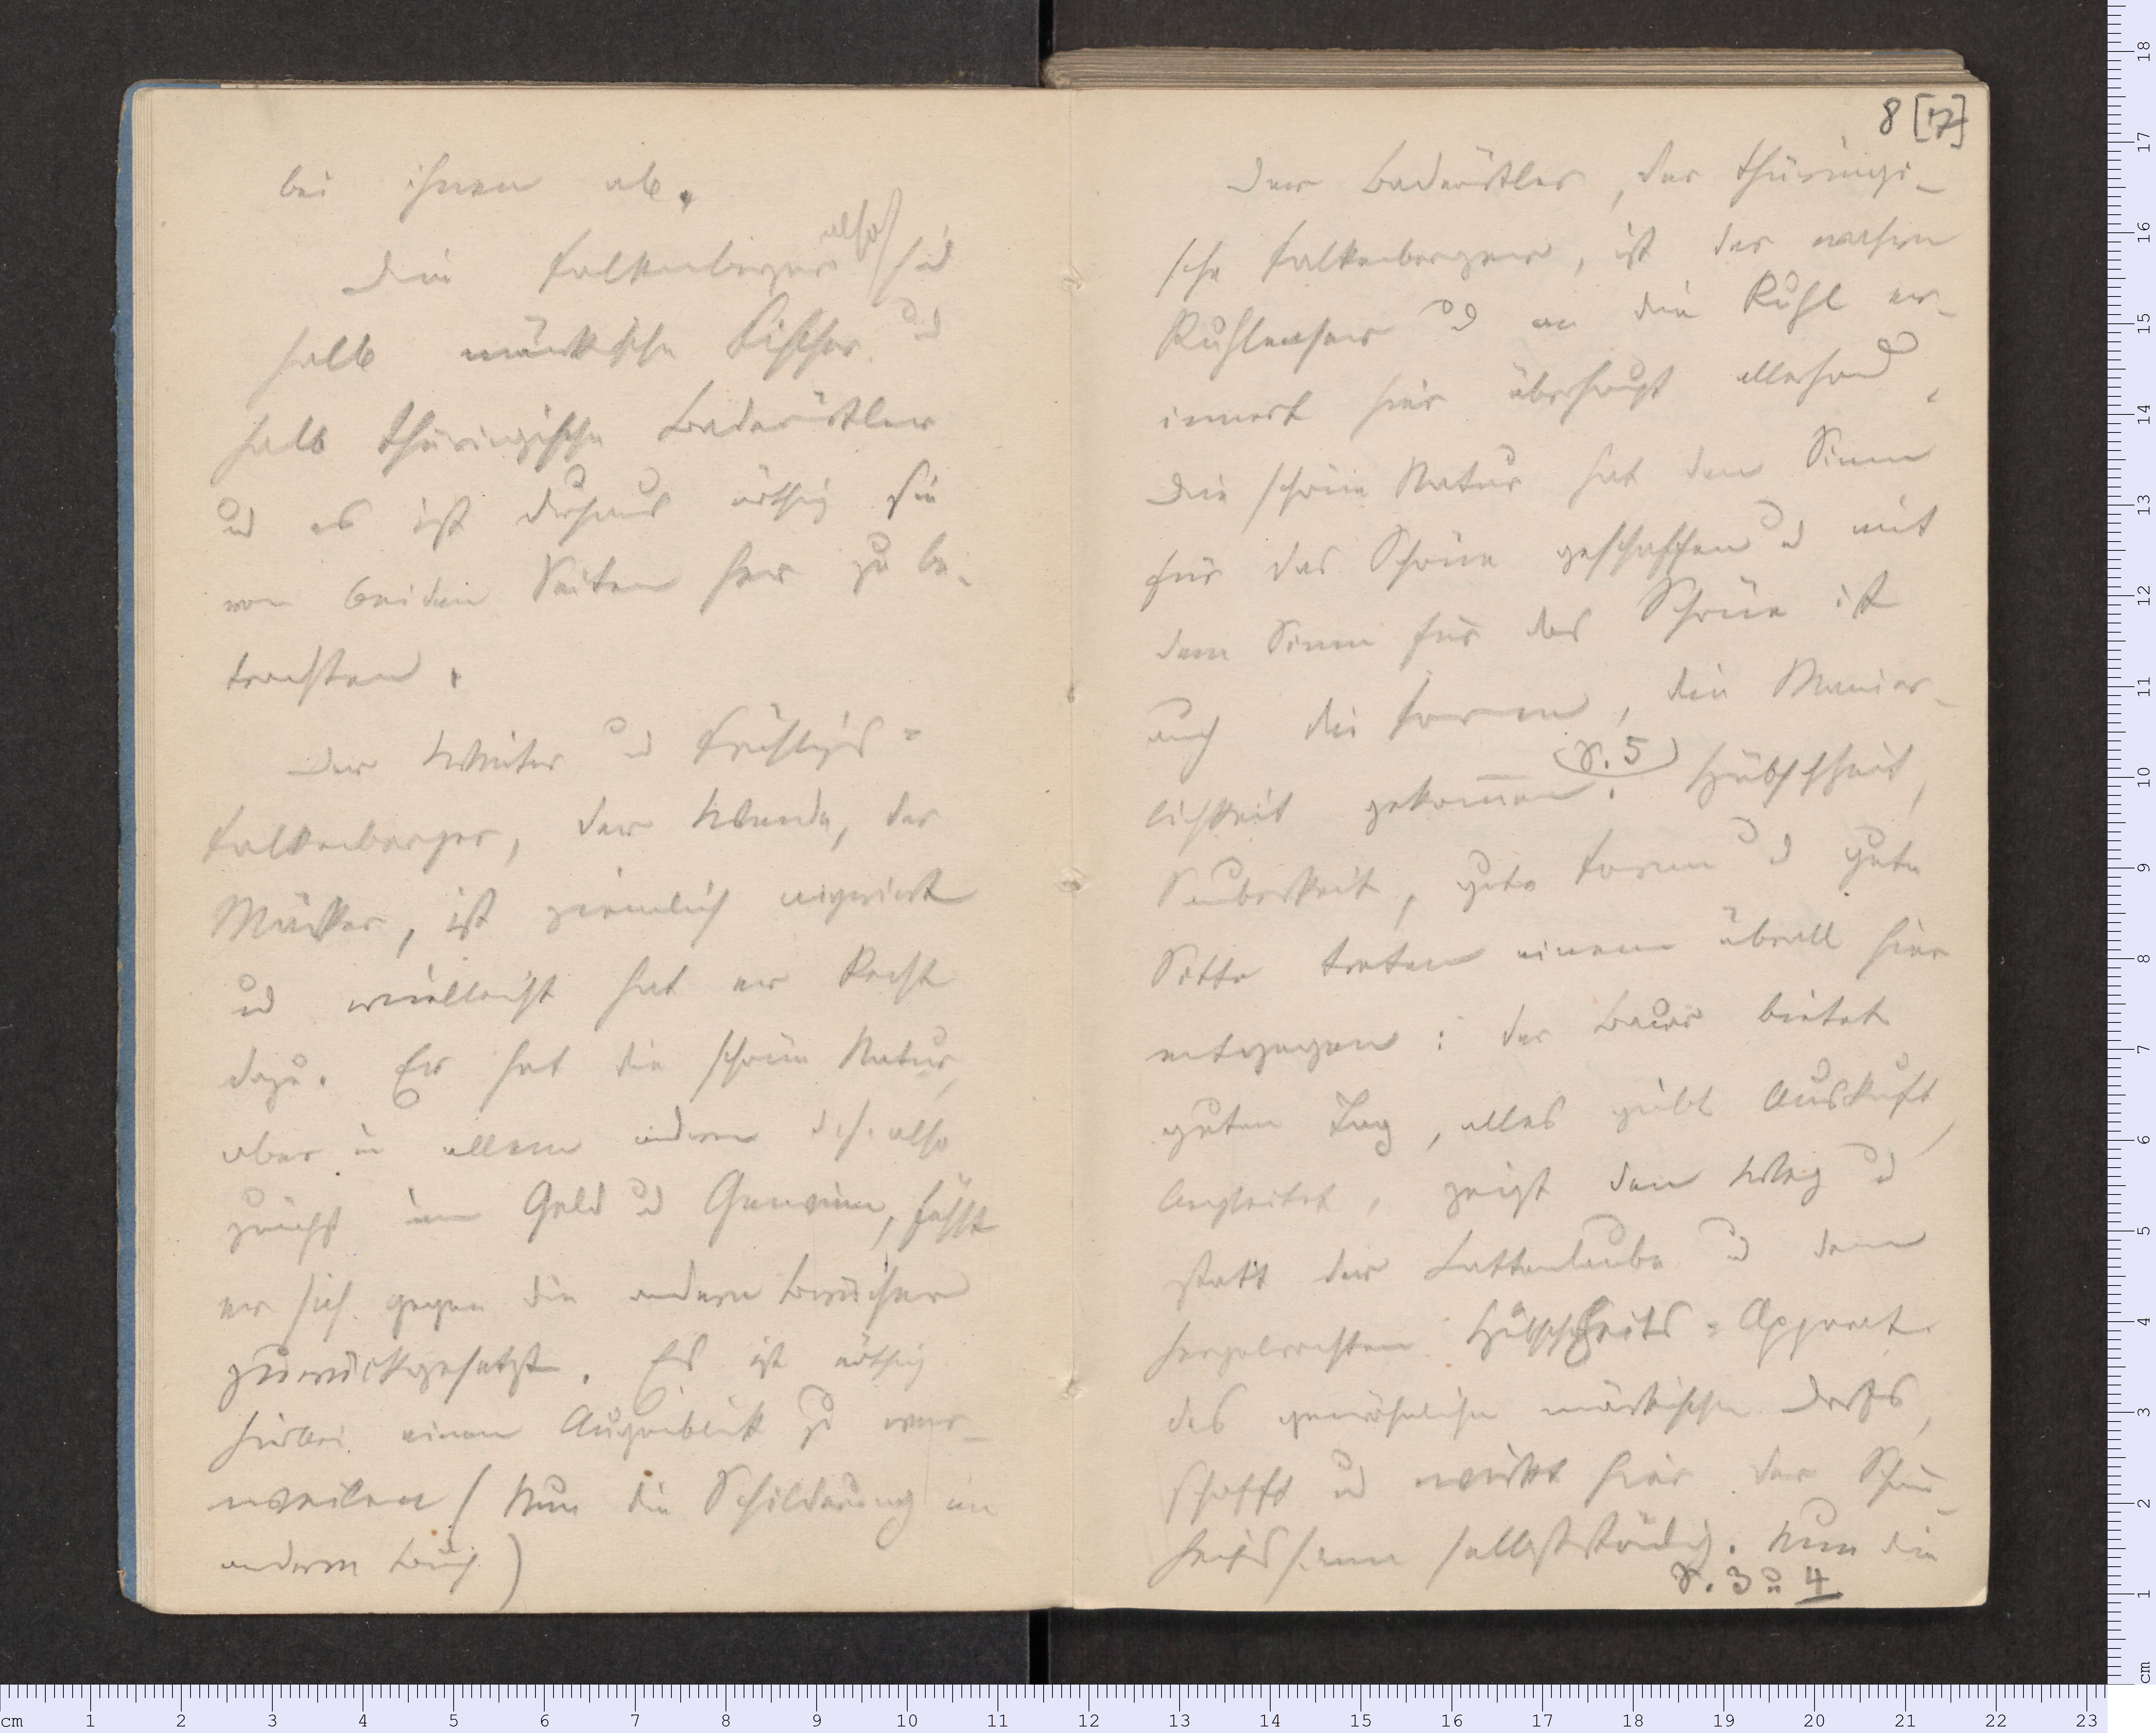 bei ihnen ab.
Die Falkenberger also sind
halb märkische Fischer und
halb thüringische Badeörtler
und es ist durchaus nöthig sie
von beiden Seiten her zu be-
trachten.
Der Winter und Frühlings-
Falkenberger, der Wende, der
Märker, ist ziemlich
und vielleicht hat er Recht
dazu. Er hat die schöne Natur,
aber in allem andern d. h. also
zunächst in Geld und Gewinn, fühlt
er sich gegen die andern Brücher
zurückgesetzt. Es ist nöthig
hierbei einen Augenblick zu ver-
weilen (Nun die Schilderung im
andern Buch)
8 [17]
Der Badeörtler, der thüringi-
sche Falkenberger, ist der wahre
Ruhlenser und an die Ruhl er-
innert hier überhaupt allerhand.
Die schöne Natur hat den Sinn
für das Schöne geschaffen und mit
dem Sinn für das Schöne ist
auch die Form, die Manier-
lichkeit gekommen. (S. 5) Hübschheit,
Sauberkeit, gute Form und gute
Sitte treten einem überall hier
entgegen: der Bauer bietet
guten Tag, alles giebt Auskunft,
begleitet, zeigt den Weg und
statt der Lattenlaube und dem
hergebrachten Hübschheits-Apparat
des gewöhnlichen märkischen Dorfs,
schafft und wirkt hier der Schön-
heitssinn selbstständig. Nun die
S. 3 u 4